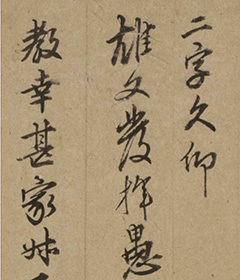 二字久仰
雄文發揮愚
教幸甚家妹